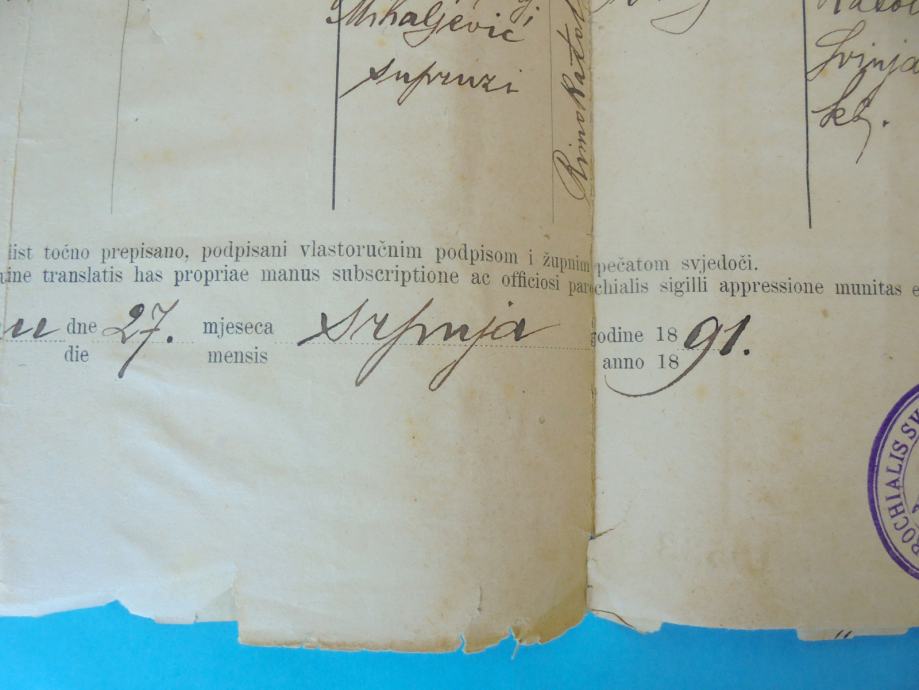 Mihaljević
supruzi
Rimo katol
Svinja
kb.
list točno prepisano, podpisani vlastoručnim podpisom i župnim pečatom svjedoči.
translatis has propriae manus subscriptione ac officiosi parochialis sigilli appressione munitas
u dne 27. mjeseca Srpnja godine 1891.
die mensis anno 18
ROCHIALIS SV